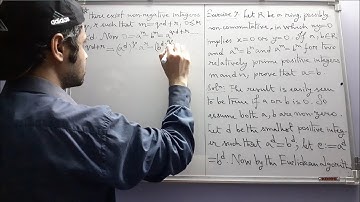 There exist non-negative integers
such that m=qd+r, 0≤r
d. Now 0=aᵐ-bᵐ=a^(qd+r)
Exercise 7 Let R be a ring, possibly
non-commutative, in which xy=0
implies x=0 or y=0. If a,b∈R
and aⁿ=bⁿ and aᵐ=bᵐ for two
relatively prime positive integers
m and n, prove that a=b
Soln: The result is easily seen
to be true if a or b is 0. So
assume both a,b are nonzero.
Let d be the smallest positive integ-
er such that aᵈ=bᵈ, let c:=aᵈ
=bᵈ. Now by the Euclidean algorithm